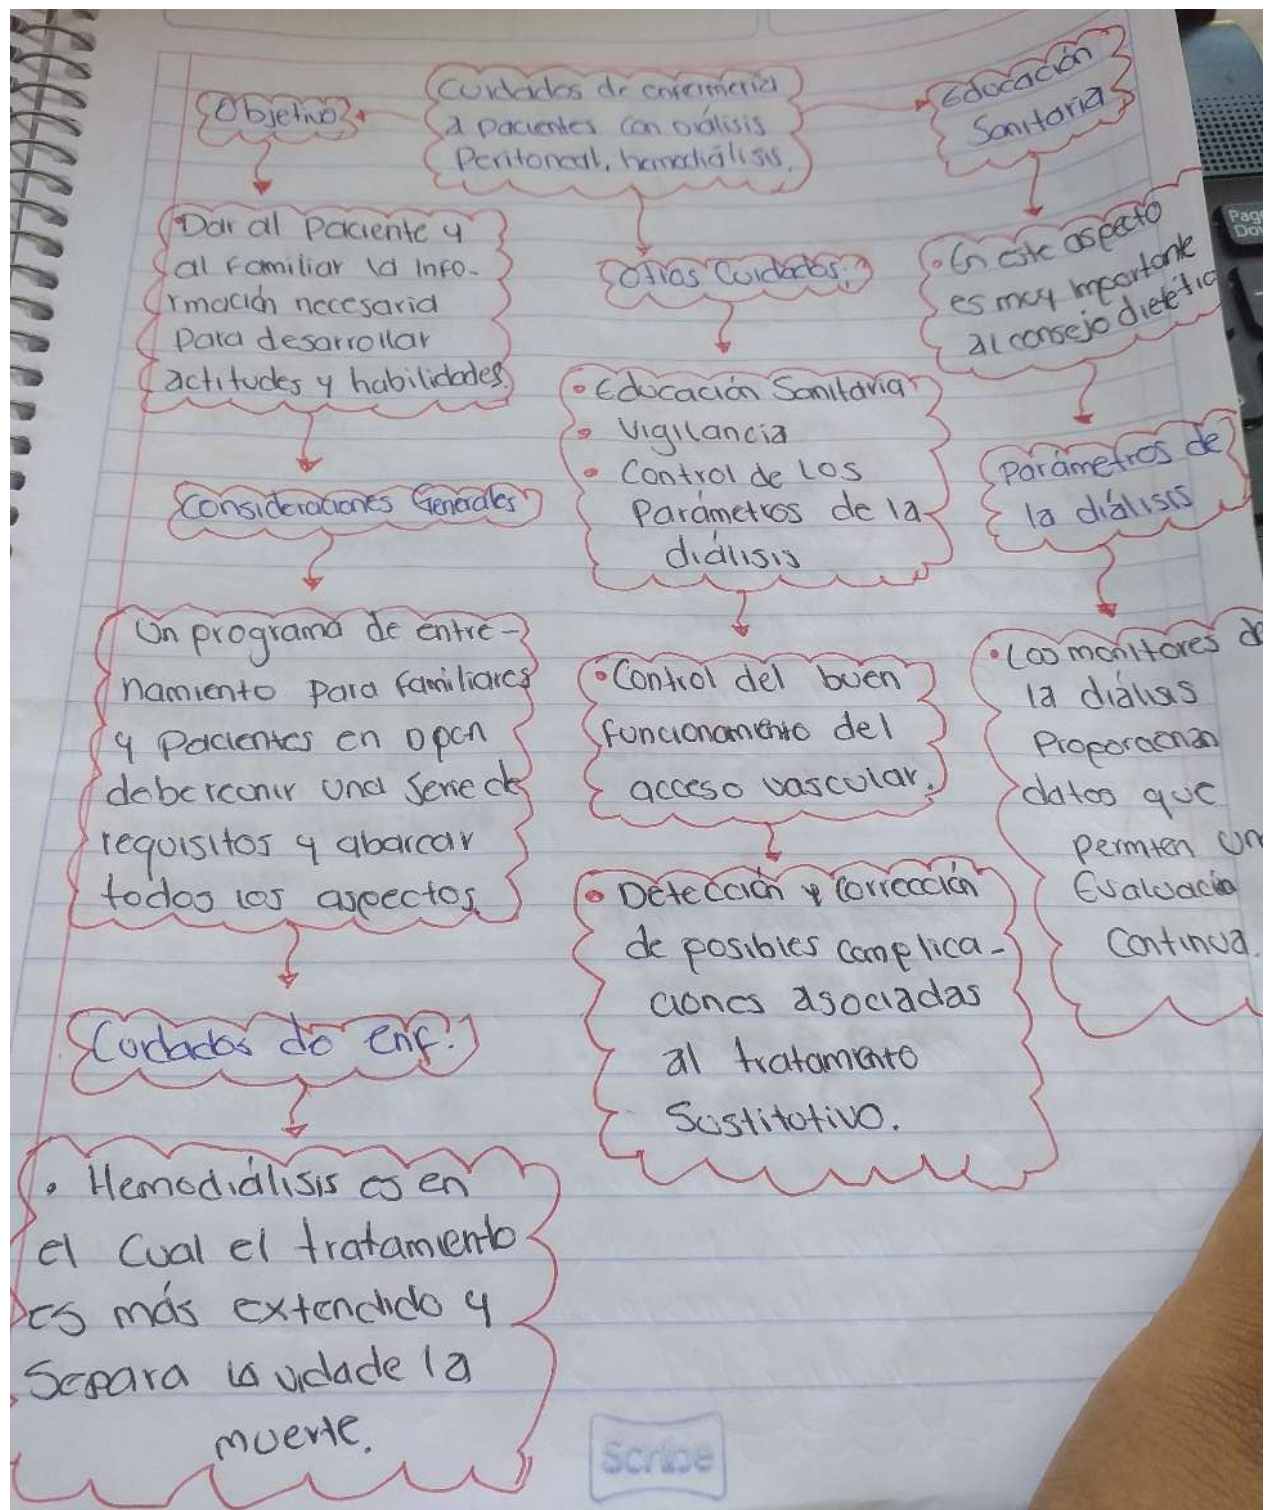 Cuidados de enfermería
a pacientes con diálisis
Peritoneal, hemodiálisis.
Objetivo
Dar al paciente y
al familiar la info-
rmación necesaria
para desarrollar
actitudes y habilidades.
Consideraciones Generales
Un programa de entre-
namiento para familiares
y pacientes en
debe reunir una serie de
requisitos y abarcar
todos los aspectos.
Cuidados de enf:
• Hemodiálisis es en
el cual el tratamiento
es más extendido y
separa la vida de la
muerte.
Otros Cuidados:
• Educación Sanitaria
• Vigilancia
• Control de los
Parámetros de la
diálisis
• Control del buen
funcionamiento del
acceso vascular.
• Detección y corrección
de posibles complica-
ciones asociadas
al tratamiento
Sustitutivo.
Educación
Sanitaria
• En este aspecto
es muy importante
al consejo dietético
Parámetros de
la diálisis
• Los monitores de
la diálisis
Proporcionan
datos que
permiten un
Evaluación
Continua.
Scribe
Page